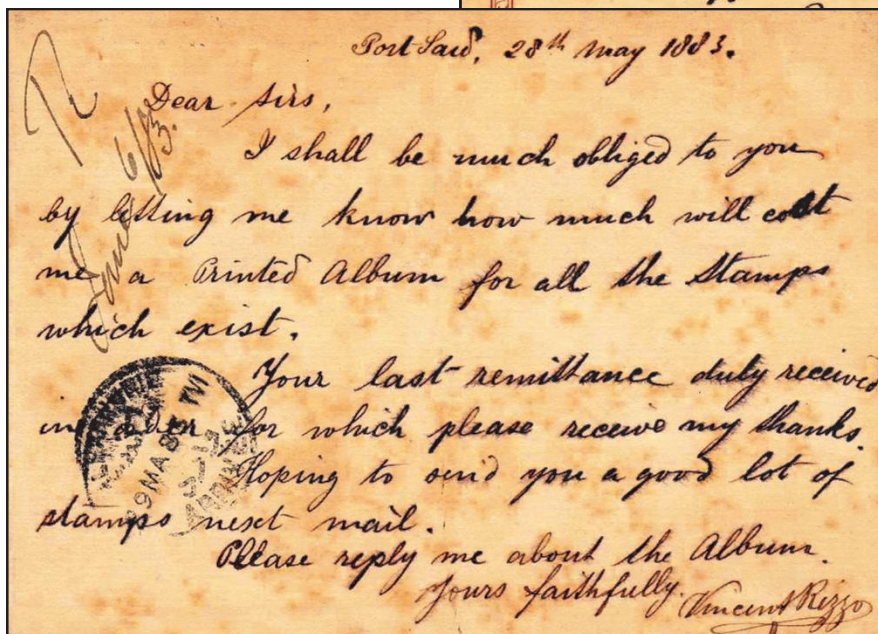 Port Said, 28th May 1883.
Dear Sirs,
I shall be much obliged to you
by letting me know how much will cost
me a Printed Album for all the Stamps
which exist.
Your last remittance duly received
in order for which please receive my thanks.
Hoping to send you a good lot of
stamps next mail.
Please reply me about the Album.
Yours faithfully.
Vincent Rizzo
June 6/83.
29 MA 83 TVI